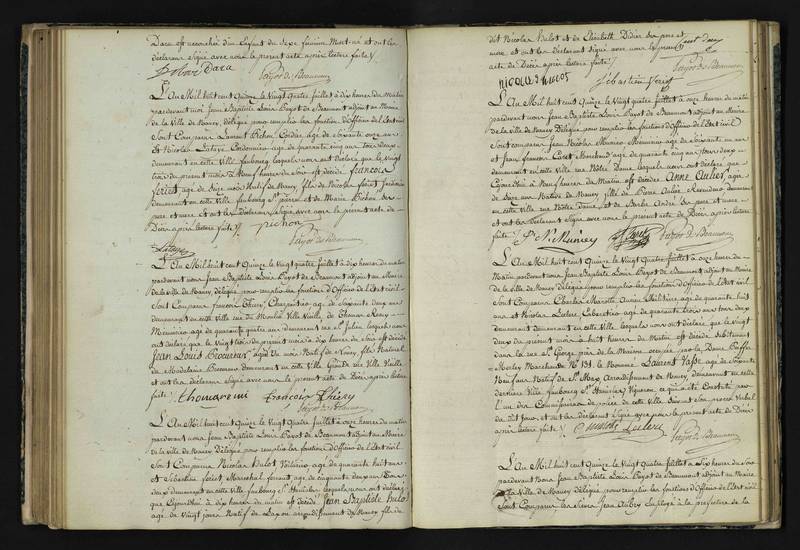 Dara est accouchée d'un Enfant du Sexe féminin Mort-né et ont les
déclarans Signé avec nous le présent acte après lecture faite /.
Dara payot de Beaumont
L'An Mil huit cent Quinze le Vingt quatre juillet à dix heures du matin
pardevant nous Jean Baptiste Louis Payot de Beaumont adjoint au Maire
de la Ville de Nancy, délégué pour remplir les fonctions d'Officier de l'Etat civil
Sont Comparus Laurent Pichon Cordier agé de Soixante onze ans
Et Nicolas Lataye Cordonnier agé de quarante cinq ans tous deux
demeurant en cette Ville faubourg lesquels nous ont déclaré que le Vingt
trois du présent mois à Neuf heures du Soir est décédé françois
feriet agé de Natif de Nancy fils de Nicolas feriet
demeurant en cette Ville faubourg St pierre et de Marie Pichon Ses
père et mère et ont les déclarans Signé avec nous le présent acte de
Décès après lecture faite /. pichon
Lataye payot de Beaumont
L'An Mil huit cent Quinze le Vingt quatre juillet à dix heures du Matin
pardevant nous Jean Baptiste Louis Payot de Beaumont adjoint au Maire
de la Ville de Nancy délégué pour remplir les fonctions d'Officier de l'Etat civil
Sont Comparus françois Thiery, Charpentier agé de Soixante deux ans
demeurant en cette Ville rue du Moulin Ville Vieille et Thomas Remy
Menuisier agé de quarante quatre ans demeurant rue St Julien lesquels nous
ont déclaré que le Vingt trois du présent mois à dix heures du Soir est décédé
Jean Louis Procureur, agé Natif de Nancy, fils Naturel
de Madelaine demeurant en cette Ville Grande rue Ville Vieille
et ont les déclarans Signé avec nous le présent acte de Décès après lecture
faite /. thomas remi François Thiéry
payot de Beaumont
L'An Mil huit cent Quinze le Vingt Quatre Juillet à onze heures du matin
pardevant nous Jean Baptiste Louis Payot de Beaumont adjoint au Maire
de la Ville de Nancy Délégué pour remplir les fonctions d'Officier de l'Etat civil
Sont Comparus Nicolas Hulot Voiturier agé de quarante huit ans
et Sébastien feriet, Marechal ferrant agé de cinquante deux ans Tous
deux demeurant en cette Ville faubourg St lesquels nous ont déclaré
que Cejourd'hui à dix heures du matin est décédé Jean Baptiste Hulot
agé de Vingt jours Natif de Laxou arrondissement de Nancy fils de
dit Nicolas Hulot et de Elisabeth Didier Ses père et
mère et ont les déclarans signé avec nous le présent
acte de Décès après lecture faite / payot de Beaumont
nicolas hulot Sébastien feriet
L'An Mil huit cent Quinze le Vingt quatre juillet à onze heures du matin
pardevant nous Jean Baptiste Louis Payot de Beaumont adjoint au Maire
de la Ville de Nancy Délégué pour remplir les fonctions d'Officier de l'Etat civil
Sont comparus Jean Nicolas Munier agé de Soixante un ans
et Jean francois Caret Marchand agé de quarante cinq ans tous deux
demeurant en cette Ville rue Nôtre Dame lesquels nous ont déclaré que
Cejourd'hui à Neuf heures du Matin est décédée Anne Aulier, agée
de Seize ans Native de Nancy, fille de Pierre Aulier demeurant
en cette Ville rue Nôtre Dame et de Barbe André Ses père et mère
et ont les déclarans Signé avec nous le présent acte de Décès après lecture
faite / J. N. Muniey Caret payot de Beaumont
L'An Mil huit cent Quinze le Vingt Quatre juillet à onze heures du
Matin pardevant nous Jean Baptiste Louis Payot de Beaumont adjoint au Maire
de la Ville de Nancy délégué pour remplir les fonctions d'Officier de l'Etat civil
Sont Comparus Charles Marotte Ancien Militaire agé de quarante huit
ans et Nicolas Leclerc, Cabaretier agé de quarante trois ans tous deux
demeurant en cette Ville, lesquels nous ont déclaré, que le Vingt
deux du présent mois à huit heures du Matin est décédé Subitement
dans la rue St George près de la Maison occupée par la Dame
Marchande No 131. le Nommé Laurent Vasse agé de Soixante
Neuf ans Natif de St Max Arrondissement de Nancy demeurant en cette
dernière Ville faubourg St Stanislas Vigneron ce qui a été Constaté par
l'un des Commissaires de police de cette Ville Suivant Son procès Verbal
et ont les déclarans Signé avec nous le présent acte de Décès
après lecture faite /. marotte Leclerc
payot de Beaumont
L'An Mil huit cent Quinze le Vingt Quatre juillet à Six heures du Soir
pardevant Nous Jean Baptiste Louis Payot de Beaumont adjoint au Maire
de la Ville de Nancy délégué pour remplir les fonctions d'Officier de l'Etat civil
Sont Comparus les Sieurs Jean Aubry Employé à la préfecture de la